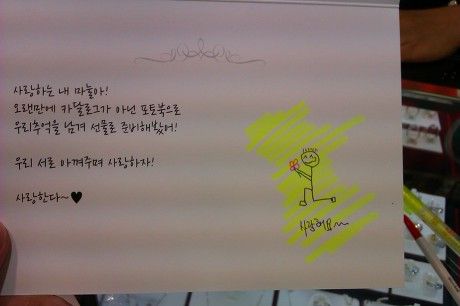 사랑하는 내 마눌아!
오랜만에 카달로그가 아닌 포토북으로
우리추억을 남겨 선물로 준비해봤어!
우리 서로 아껴주며 사랑하자!
사랑한다~♥
사랑해요~